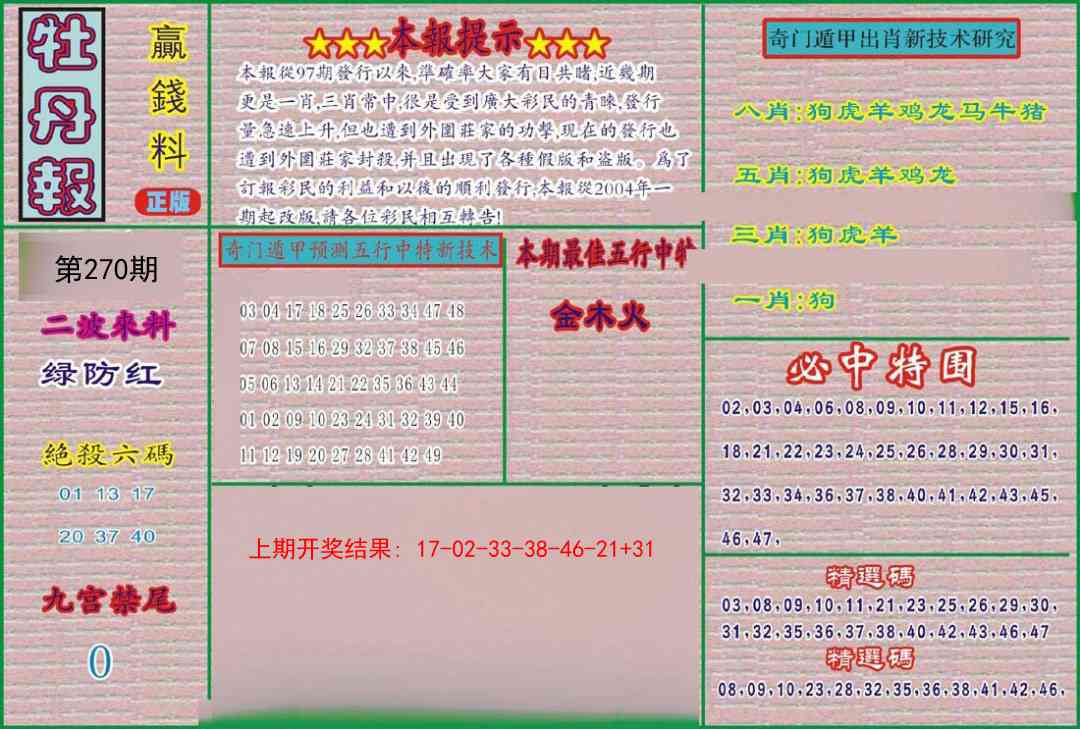 牡丹報
贏錢料
正版
★★★本報提示★★★
本報從97期發行以來,準確率大家有目共睹,近幾期
更是一肖,三肖常中,很是受到廣大彩民的青睞,發行
量急速上升,但也遭到外圍莊家的功擊,現在的發行也
遭到外圍莊家封殺,并且出現了各種假版和盜版。爲了
訂報彩民的利益和以後的順利發行,本報從2004年一
期起改版,請各位彩民相互轉告!
奇门遁甲出肖新技术研究
八肖:狗虎羊鸡龙马牛猪
五肖:狗虎羊鸡龙
三肖:狗虎羊
一肖:狗
第270期
二波來料
绿防红
絕殺六碼
01 13 17
20 37 40
九宫禁尾
0
奇门遁甲预测五行中特新技术
03 04 17 18 25 26 33 34 47 48
07 08 15 16 29 32 37 38 45 46
05 06 13 14 21 22 35 36 43 44
01 02 09 10 23 24 31 32 39 40
11 12 19 20 27 28 41 42 49
本期最佳五行中
金木火
上期开奖结果: 17-02-33-38-46-21+31
必中特围
02,03,04,06,08,09,10,11,12,15,16,
18,21,22,23,24,25,26,28,29,30,31,
32,33,34,36,37,38,40,41,42,43,45,
46,47,
精選碼
03,08,09,10,11,21,23,25,26,29,30,
31,32,35,36,37,38,40,42,43,46,47
精選碼
08,09,10,23,28,32,35,36,38,41,42,46,